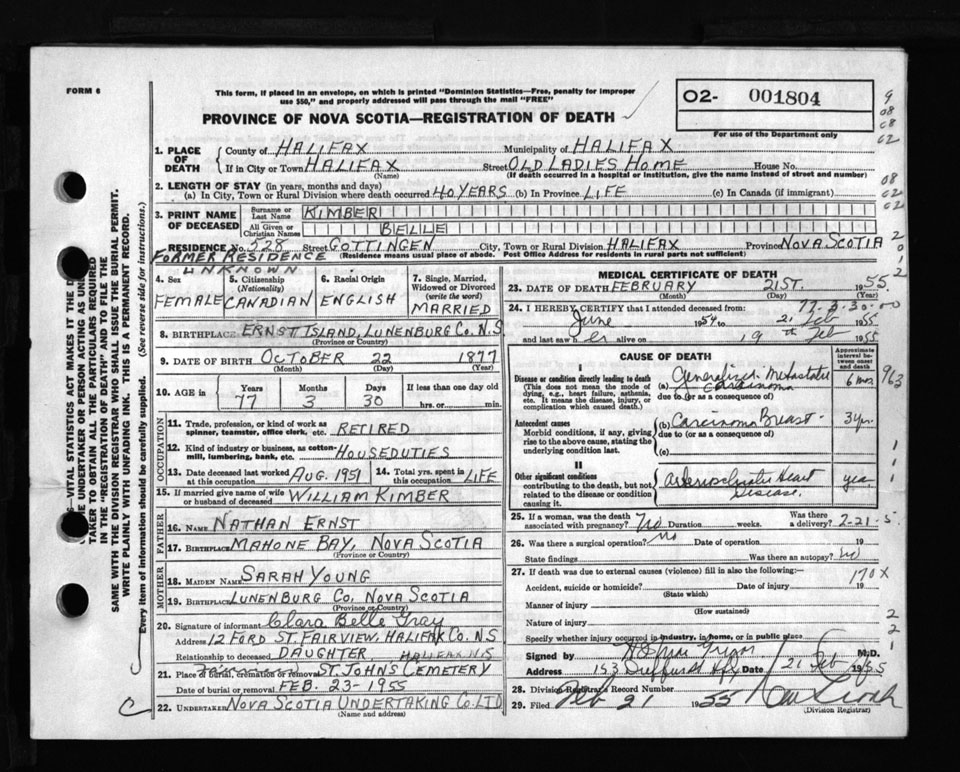 FORM 6
This form, if placed in an envelope, on which is printed "Dominion Statistics—Free, penalty for improper
use $50," and properly addressed will pass through the mail "FREE"
02- 001804
For use of the Department only
PROVINCE OF NOVA SCOTIA—REGISTRATION OF DEATH
9
08
08
02
1. PLACE OF DEATH County of HALIFAX Municipality of HALIFAX
If in City or Town HALIFAX (Name) Street OLD LADIES HOME House No.
(If death occurred in a hospital or institution, give the name instead of street and number)
2. LENGTH OF STAY (in years, months and days)
(a) In City, Town or Rural Division where death occurred 40 YEARS (b) In Province LIFE (c) In Canada (if immigrant)
08
02
02
3. PRINT NAME OF DECEASED Surname or Last Name KIMBER
All Given or Christian Names BELLE
RESIDENCE No. 528 Street GOTTINGEN City, Town or Rural Division HALIFAX Province NOVA SCOTIA
FORMER RESIDENCE (Residence means usual place of abode. Post Office Address for residents in rural parts not sufficient)
UNKNOWN
4. Sex FEMALE
5. Citizenship (Nationality) CANADIAN
6. Racial Origin ENGLISH
7. Single, Married, Widowed or Divorced (write the word) MARRIED
8. BIRTHPLACE ERNST ISLAND, LUNENBURG CO. N.S
(Province or Country)
9. DATE OF BIRTH OCTOBER 22 1877
(Month) (Day) (Year)
10. AGE in Years 77 Months 3 Days 30 If less than one day old
hrs. or min.
OCCUPATION
11. Trade, profession or kind of work as spinner, teamster, office clerk, etc. RETIRED
12. Kind of industry or business, as cotton-mill, lumbering, bank, etc. HOUSEDUTIES
13. Date deceased last worked at this occupation AUG. 1951 14. Total yrs. spent in this occupation LIFE
15. If married give name of wife or husband of deceased WILLIAM KIMBER
FATHER
16. NAME NATHAN ERNST
17. BIRTHPLACE MAHONE BAY, NOVA SCOTIA
(Province or Country)
MOTHER
18. MAIDEN NAME SARAH YOUNG
19. BIRTHPLACE LUNENBURG CO, NOVA SCOTIA
(Province or Country)
20. Signature of informant Clara Belle Gray
Address 12 FORD ST. FAIRVIEW, HALIFAX CO. N.S
Relationship to deceased DAUGHTER HALIFAX N.S
21. Place of burial, cremation or removal ST. JOHNS CEMETERY
Date of burial or removal FEB. 23-1955
22. UNDERTAKER NOVA SCOTIA UNDERTAKING CO. LTD
(Name and address)
MEDICAL CERTIFICATE OF DEATH
23. DATE OF DEATH FEBRUARY 21ST. 1955
(Month) (Day) (Year)
77-3-30-00
24. I HEREBY CERTIFY that I attended deceased from:
June 1954 to 21 Feb 1955
and last saw her alive on 19th Feb 1955
CAUSE OF DEATH
Approximate interval between onset and death
I
Disease or condition directly leading to death
(This does not mean the mode of dying, e.g., heart failure, asthenia, etc. It means the disease, injury, or complication which caused death.)
(a) Generalized Metastatic Carcinoma 6 mos. 963
due to (or as a consequence of)
Antecedent causes
Morbid conditions, if any, giving rise to the above cause, stating the underlying condition last.
(b) Carcinoma Breast 3 yrs.
due to (or as a consequence of)
(c)
II
Other significant conditions
contributing to the death, but not related to the disease or condition causing it.
Arteriosclerotic Heart Disease.
25. If a woman, was the death associated with pregnancy? No Duration weeks. Was there a delivery? 2-21-5
26. Was there a surgical operation? no Date of operation 19
State findings Was there an autopsy? no
27. If death was due to external causes (violence) fill in also the following:— 170X
Accident, suicide or homicide? Date of injury 19
(State which)
Manner of injury
(How sustained)
Nature of injury
Specify whether injury occurred in industry, in home, or in public place
Signed by M.D.
Address 153 Hfx Date 21 Feb 1955
28. Division Registrar's Record Number
29. Filed Feb 21 1955
(Division Registrar)
SAME WITH THE DIVISION REGISTRAR WHO SHALL ISSUE THE BURIAL PERMIT.
WRITE PLAINLY WITH UNFADING INK. THIS IS A PERMANENT RECORD.
Every item of information should be carefully supplied. (See reverse side for instructions.)
VITAL STATISTICS ACT MAKES IT THE
UNDERTAKER OR PERSON ACTING AS
TAKER TO OBTAIN ALL THE PARTICULARS REQUIRED
IN THE "REGISTRATION OF DEATH" AND TO FILE THE